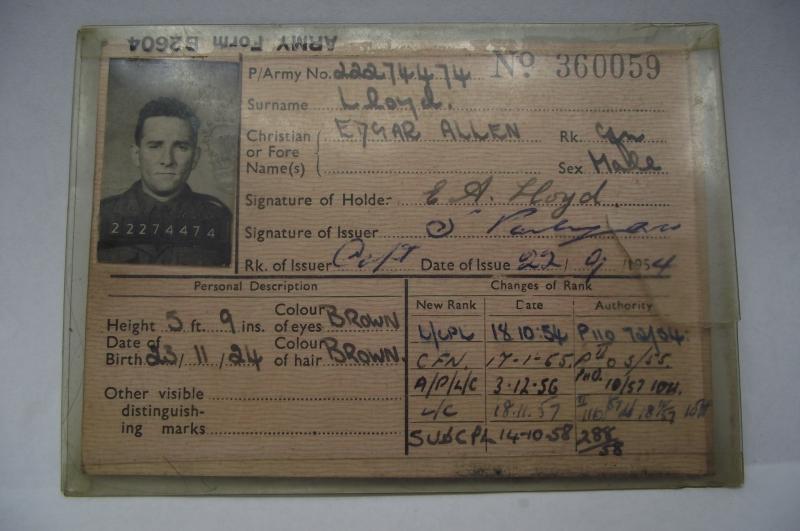 ARMY Form B2604
P/Army No. 22274474 No 360059
Surname Lloyd.
Christian or Fore Name(s) EDGAR ALLEN Rk. Cfn
Sex Male
22274474
Signature of Holder E A. Lloyd.
Signature of Issuer
Rk. of Issuer Capt Date of Issue 22/9/1954
Personal Description Changes of Rank
Height 5 ft. 9 ins. Colour of eyes BROWN
Date of Birth 23/11/24 Colour of hair BROWN.
Other visible distinguish-ing marks
New Rank Date Authority
L/CPL 18.10.54 P110 72/54.
CFN. 17-1-55.
A/P/L/C 3-12-56 10/57
L/C 18.11.57
SUBCPL 14-10-58 288/58